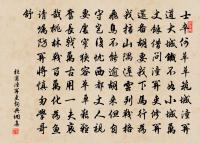 士卒何草草築城潼關
道大城鐵不如小城萬
丈餘借問潼關吏修關
還備胡要我下馬行為
我指山隅連雲列戰格
飛鳥不能逾胡來但自
守豈復憂西都丈人視
要處窄狹容單車艱難
奮長戟萬古用一夫哀
哉桃林戰百萬化為魚
請囑防關將慎勿學哥
舒
杜甫潼關吏